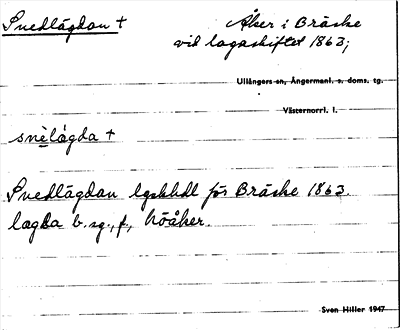 Snedlägdan †
Åker i Bräcke
vid lagaskiftet 1863;
Ullångers sn, Ångermanl. s. doms. tg.
Västernorrl. l.
snèlágda †
Snedlägdan lgskhdl för Bräcke 1863.
lagda b. sg., f., höåker.
Sven Hiller 1947